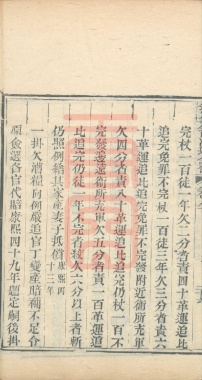 完杖一百徒一年欠二分者責四十革運追比
追完免罪不完杖一百徒三年欠三分者責六
十革運追比追完免罪不完發附近衛所充軍
欠四分者責八十革運追比追完仍杖一百不
完發邊遠衛所充軍欠五分者責一百革運追
比追完仍徒一年不完擬絞欠六分以上者斬
仍照例籍其家產妻子抵償康熙四十三年
一掛欠漕糧向例嚴追官丁變產賠補不足僉
原僉選各官代賠康熙四十九年題定嗣後掛